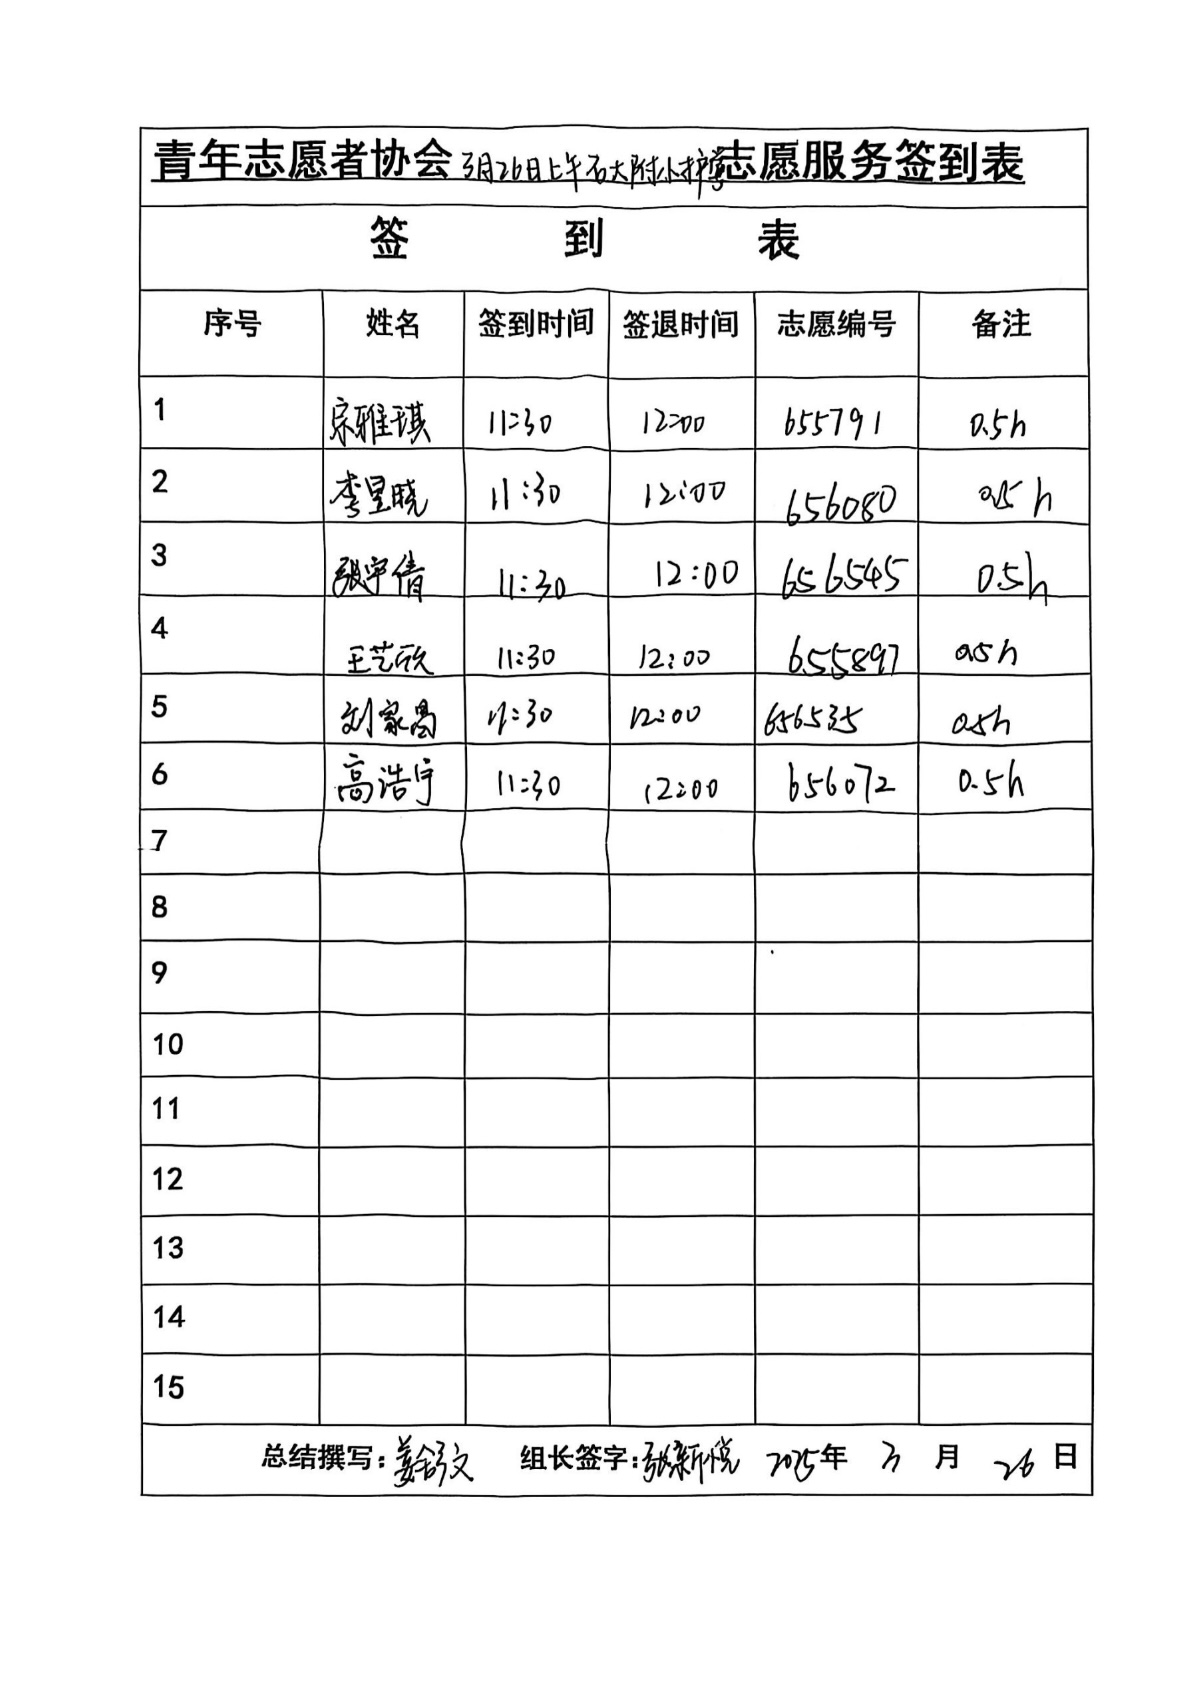 青年志愿者协会3月26日上午石大附小护学志愿服务签到表
签 到 表
序号 姓名 签到时间 签退时间 志愿编号 备注
1 宗雅琪 11:30 12:00 655791 0.5h
2 李昱晓 11:30 12:00 656080 0.5h
3 张宇倩 11:30 12:00 656545 0.5h
4 王艺欣 11:30 12:00 655897 0.5h
5 刘家昌 11:30 12:00 656535 0.5h
6 高浩宇 11:30 12:00 656072 0.5h
7
8
9
10
11
12
13
14
15
总结撰写: 组长签字:张新悦 2025年 3 月 26 日